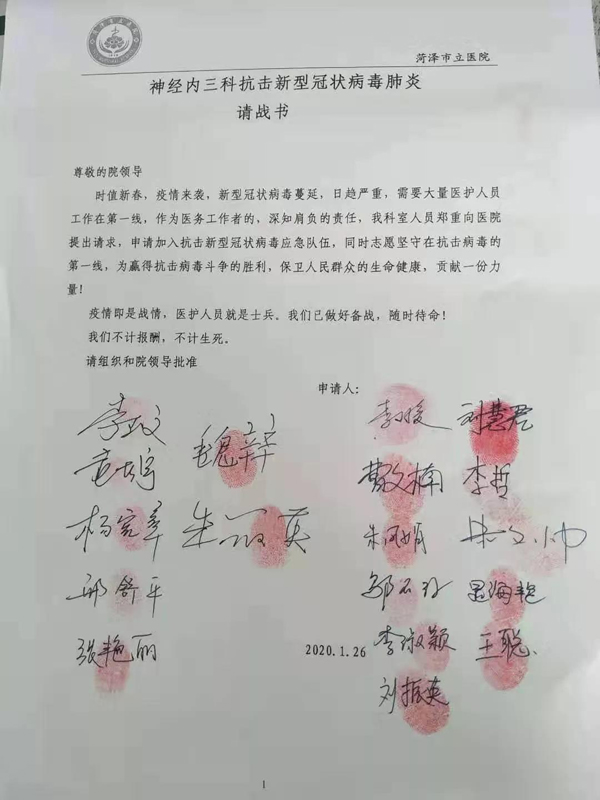 菏泽市立医院
神经内三科抗击新型冠状病毒肺炎
请战书
尊敬的院领导
时值新春，疫情来袭，新型冠状病毒蔓延，日趋严重，需要大量医护人员
工作在第一线，作为医务工作者的，深知肩负的责任，我科室人员郑重向医院
提出请求，申请加入抗击新型冠状病毒应急队伍，同时志愿坚守在抗击病毒的
第一线，为赢得抗击病毒斗争的胜利，保卫人民群众的生命健康，贡献一份力
量！
疫情即是战情，医护人员就是士兵。我们已做好备战，随时待命！
我们不计报酬，不计生死。
请组织和院领导批准
申请人：
刘慧君
曹文楠 李哲
杨宪章
邱舒平
张艳丽
2020.1.26
李淑颖 王聪
刘振英
1